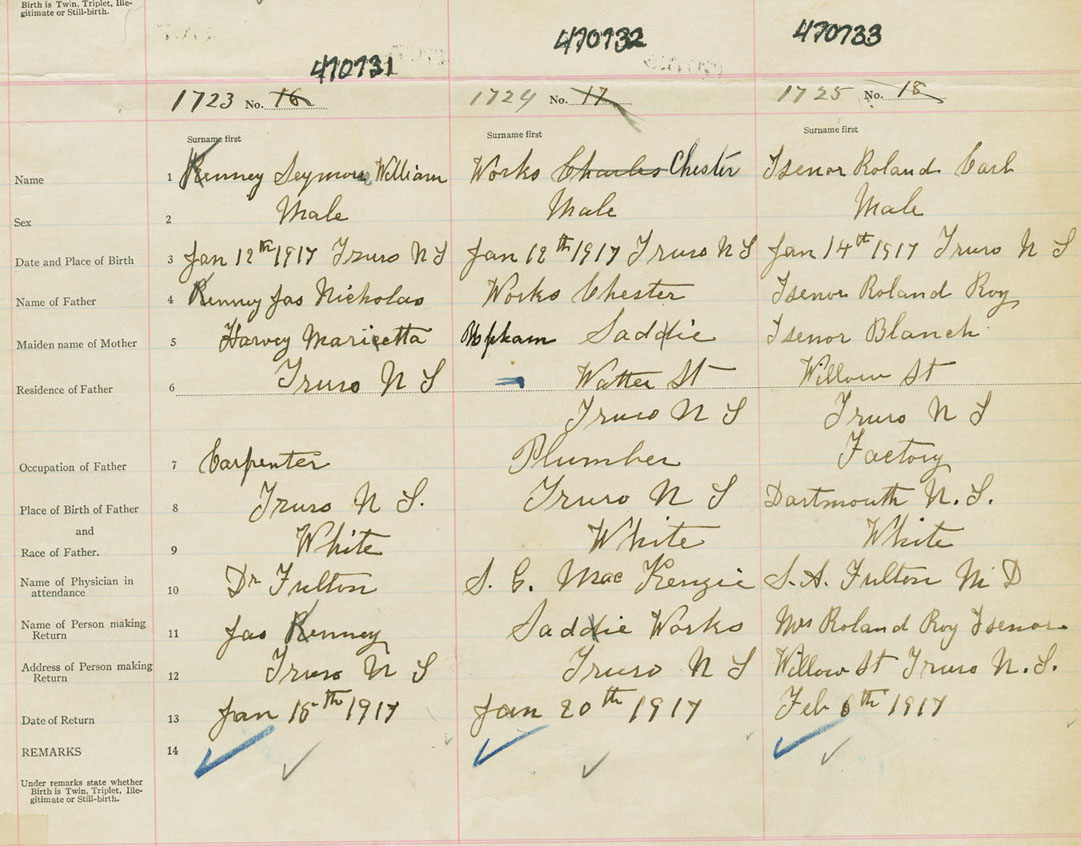 Birth is Twin, Triplet, Ille-
gitimate or Still-birth.
470731 470732 470733
1723 No. 16 1724 No. 17 1725 No. 18
Surname first Surname first Surname first
Name 1 Kenney Seymour William Works Charles Chester Isenor Roland Carl
Sex 2 Male Male Male
Date and Place of Birth 3 Jan 12th 1917 Truro N S Jan 12th 1917 Truro N S Jan 14th 1917 Truro N S
Name of Father 4 Kenney Jas Nicholas Works Chester Isenor Roland Roy
Maiden name of Mother 5 Harvey Marietta Popham Saddie Isenor Blanch
Residence of Father 6 Truro N S Watter St Willow St
Truro N S Truro N S
Occupation of Father 7 Carpenter Plumber Factory
Place of Birth of Father 8 Truro N S. Truro N S Dartmouth N.S.
and
Race of Father. 9 White White White
Name of Physician in
attendance 10 Dr Fulton S. G. Mac Kenzie S. A. Fulton M D
Name of Person making
Return 11 Jas Kenney Saddie Works Mrs Roland Roy Isenor
Address of Person making
Return 12 Truro N S Truro N S Willow St Truro N.S.
Date of Return 13 Jan 15th 1917 Jan 20th 1917 Feb 6th 1917
REMARKS 14
Under remarks state whether
Birth is Twin, Triplet, Ille-
gitimate or Still-birth.